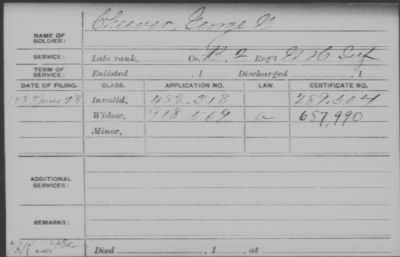 NAME OF SOLDIER: Cheever, George N
SERVICE: Late rank, Co. B, 2 Reg't N H Inf
TERM OF SERVICE: Enlisted , 1 Discharged , 1
DATE OF FILING. CLASS. APPLICATION NO. LAW. CERTIFICATE NO.
Invalid, 482.318 289.304
Widow, 918.569 657,990
Minor,
ADDITIONAL SERVICES:
REMARKS:
Died , 1 , at